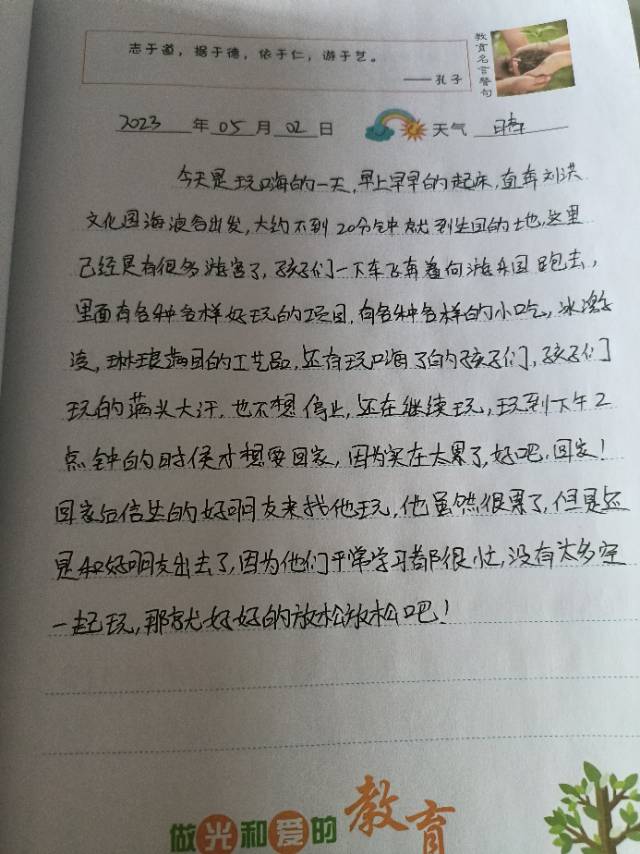 志于道，据于德，依于仁，游于艺。
——孔子
教育名言警句
2023 年 05 月 02 日 天气 晴
今天是玩嗨的一天，早上早早的起床，直奔刘洪
文化园海浪谷出发，大约不到20分钟就到生园的地，这里
已经是有很多游客了，孩子们一下车飞奔着向游乐园跑去，
里面有各种各样好玩的项目，有各种各样的小吃，冰激
凌，琳琅满目的工艺品，还有玩嗨了的孩子们，孩子们
玩的满头大汗，也不想停止，还在继续玩，玩到下午2
点钟的时候才想要回家，因为实在太累了，好吧，回家！
回家后信生的好朋友来找他玩，他虽然很累了，但是还
是和好朋友出去了，因为他们平常学习都很忙，没有太多空
一起玩，那就好好的放松放松吧！
做光和爱的教育